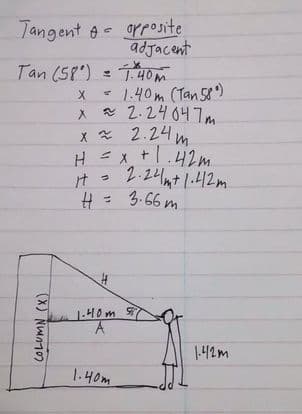 Tangent θ = opposite
adjacent
Tan (58°) = x
1.40m
x = 1.40m (Tan 58°)
x ≈ 2.24047m
x ≈ 2.24m
H = x + 1.42m
H = 2.24m + 1.42m
H = 3.66m
H
1.40m 58°
A
COLUMN (X)
1.42m
1.40m